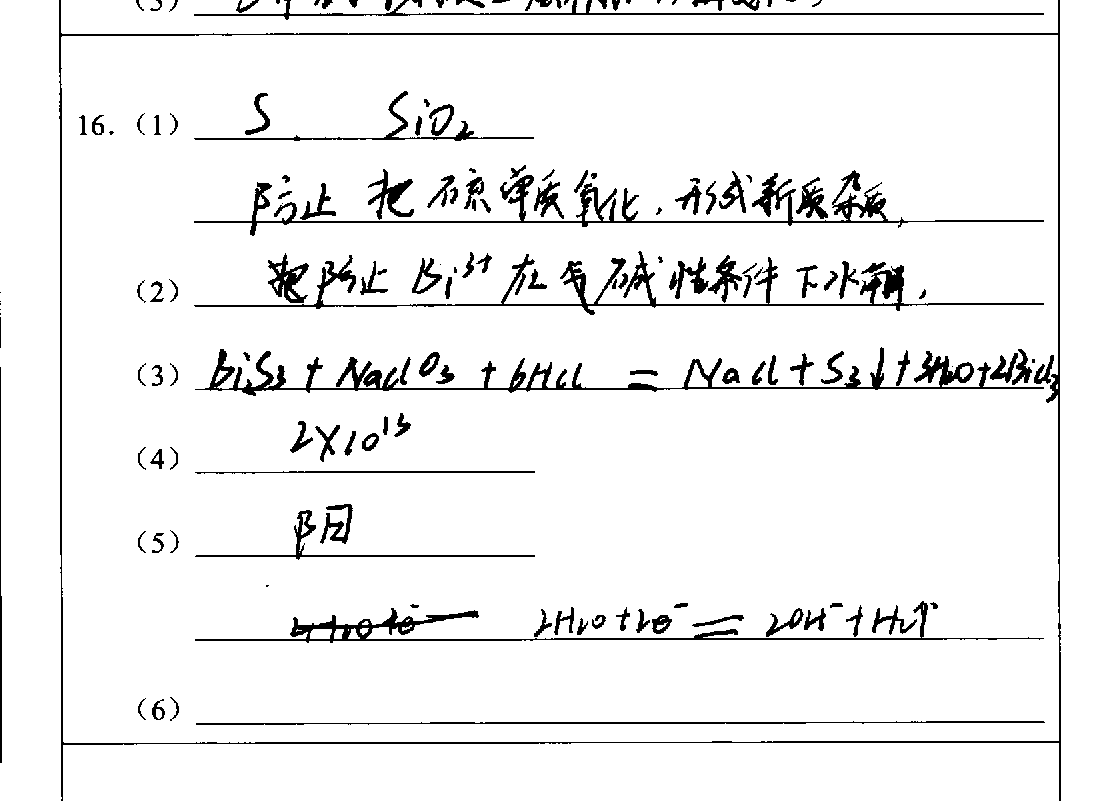 (5)
16. (1) S SiO₂
防止把硫单质氧化，形成新质杂质，
(2) 把防止 Bi³⁺ 在 碱性条件下水解，
(3) Bi₂S₃ + NaClO₃ + 6HCl = NaCl + S₃↓ + 3H₂O + 2BiCl₃
(4) 2×10¹³
(5) 阳
2H₂O + 2e⁻ = 2OH⁻ + H₂↑
(6)